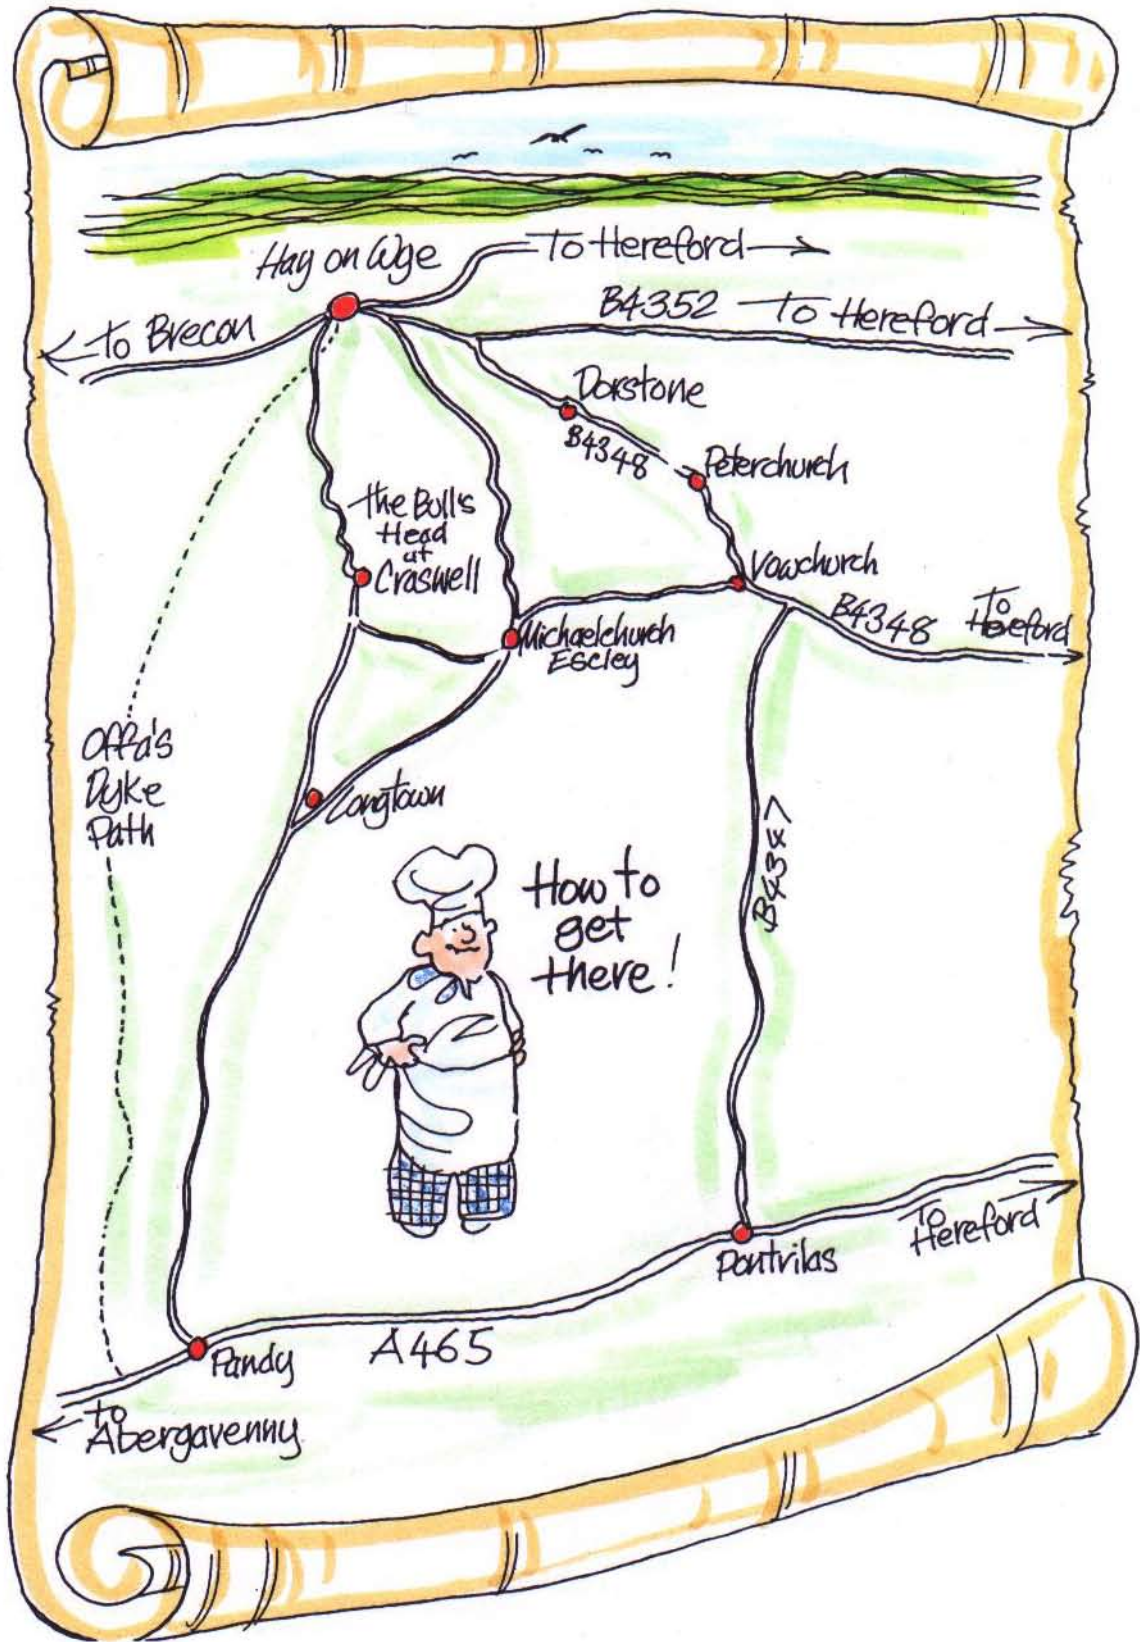 Hay on Wye
To Hereford
B4352 To Hereford
To Brecon
Dorstone
B4348
Peterchurch
the Bull's
Head
at
Craswell
Vowchurch
B4348
To
Hereford
Michaelchurch
Escley
Offa's
Dyke
Path
Longtown
B4347
How to
get
there!
To
Hereford
Pontrilas
A465
Pandy
to
Abergavenny